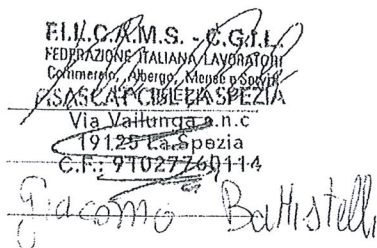 F.I.L.C.A.M.S. - C.G.I.L.
FEDERAZIONE ITALIANA LAVORATORI
Commercio, Albergo, Mense e Servizi
FISASCAT CISL LA SPEZIA
Via Vailunga s.n.c
19125 La Spezia
C.F.: 91027760114
Giacomo Battistelli